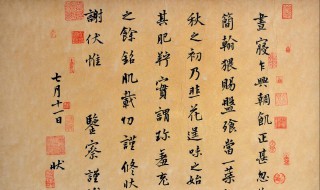 晝寢乍興朝飢正甚忽
簡翰猥賜盤飧當一葉
秋之初乃韭花逞味之始
其肥羜實謂珍羞充
之餘銘肌載切謹修狀
謝伏惟 鑒察謹
七月十一日 狀